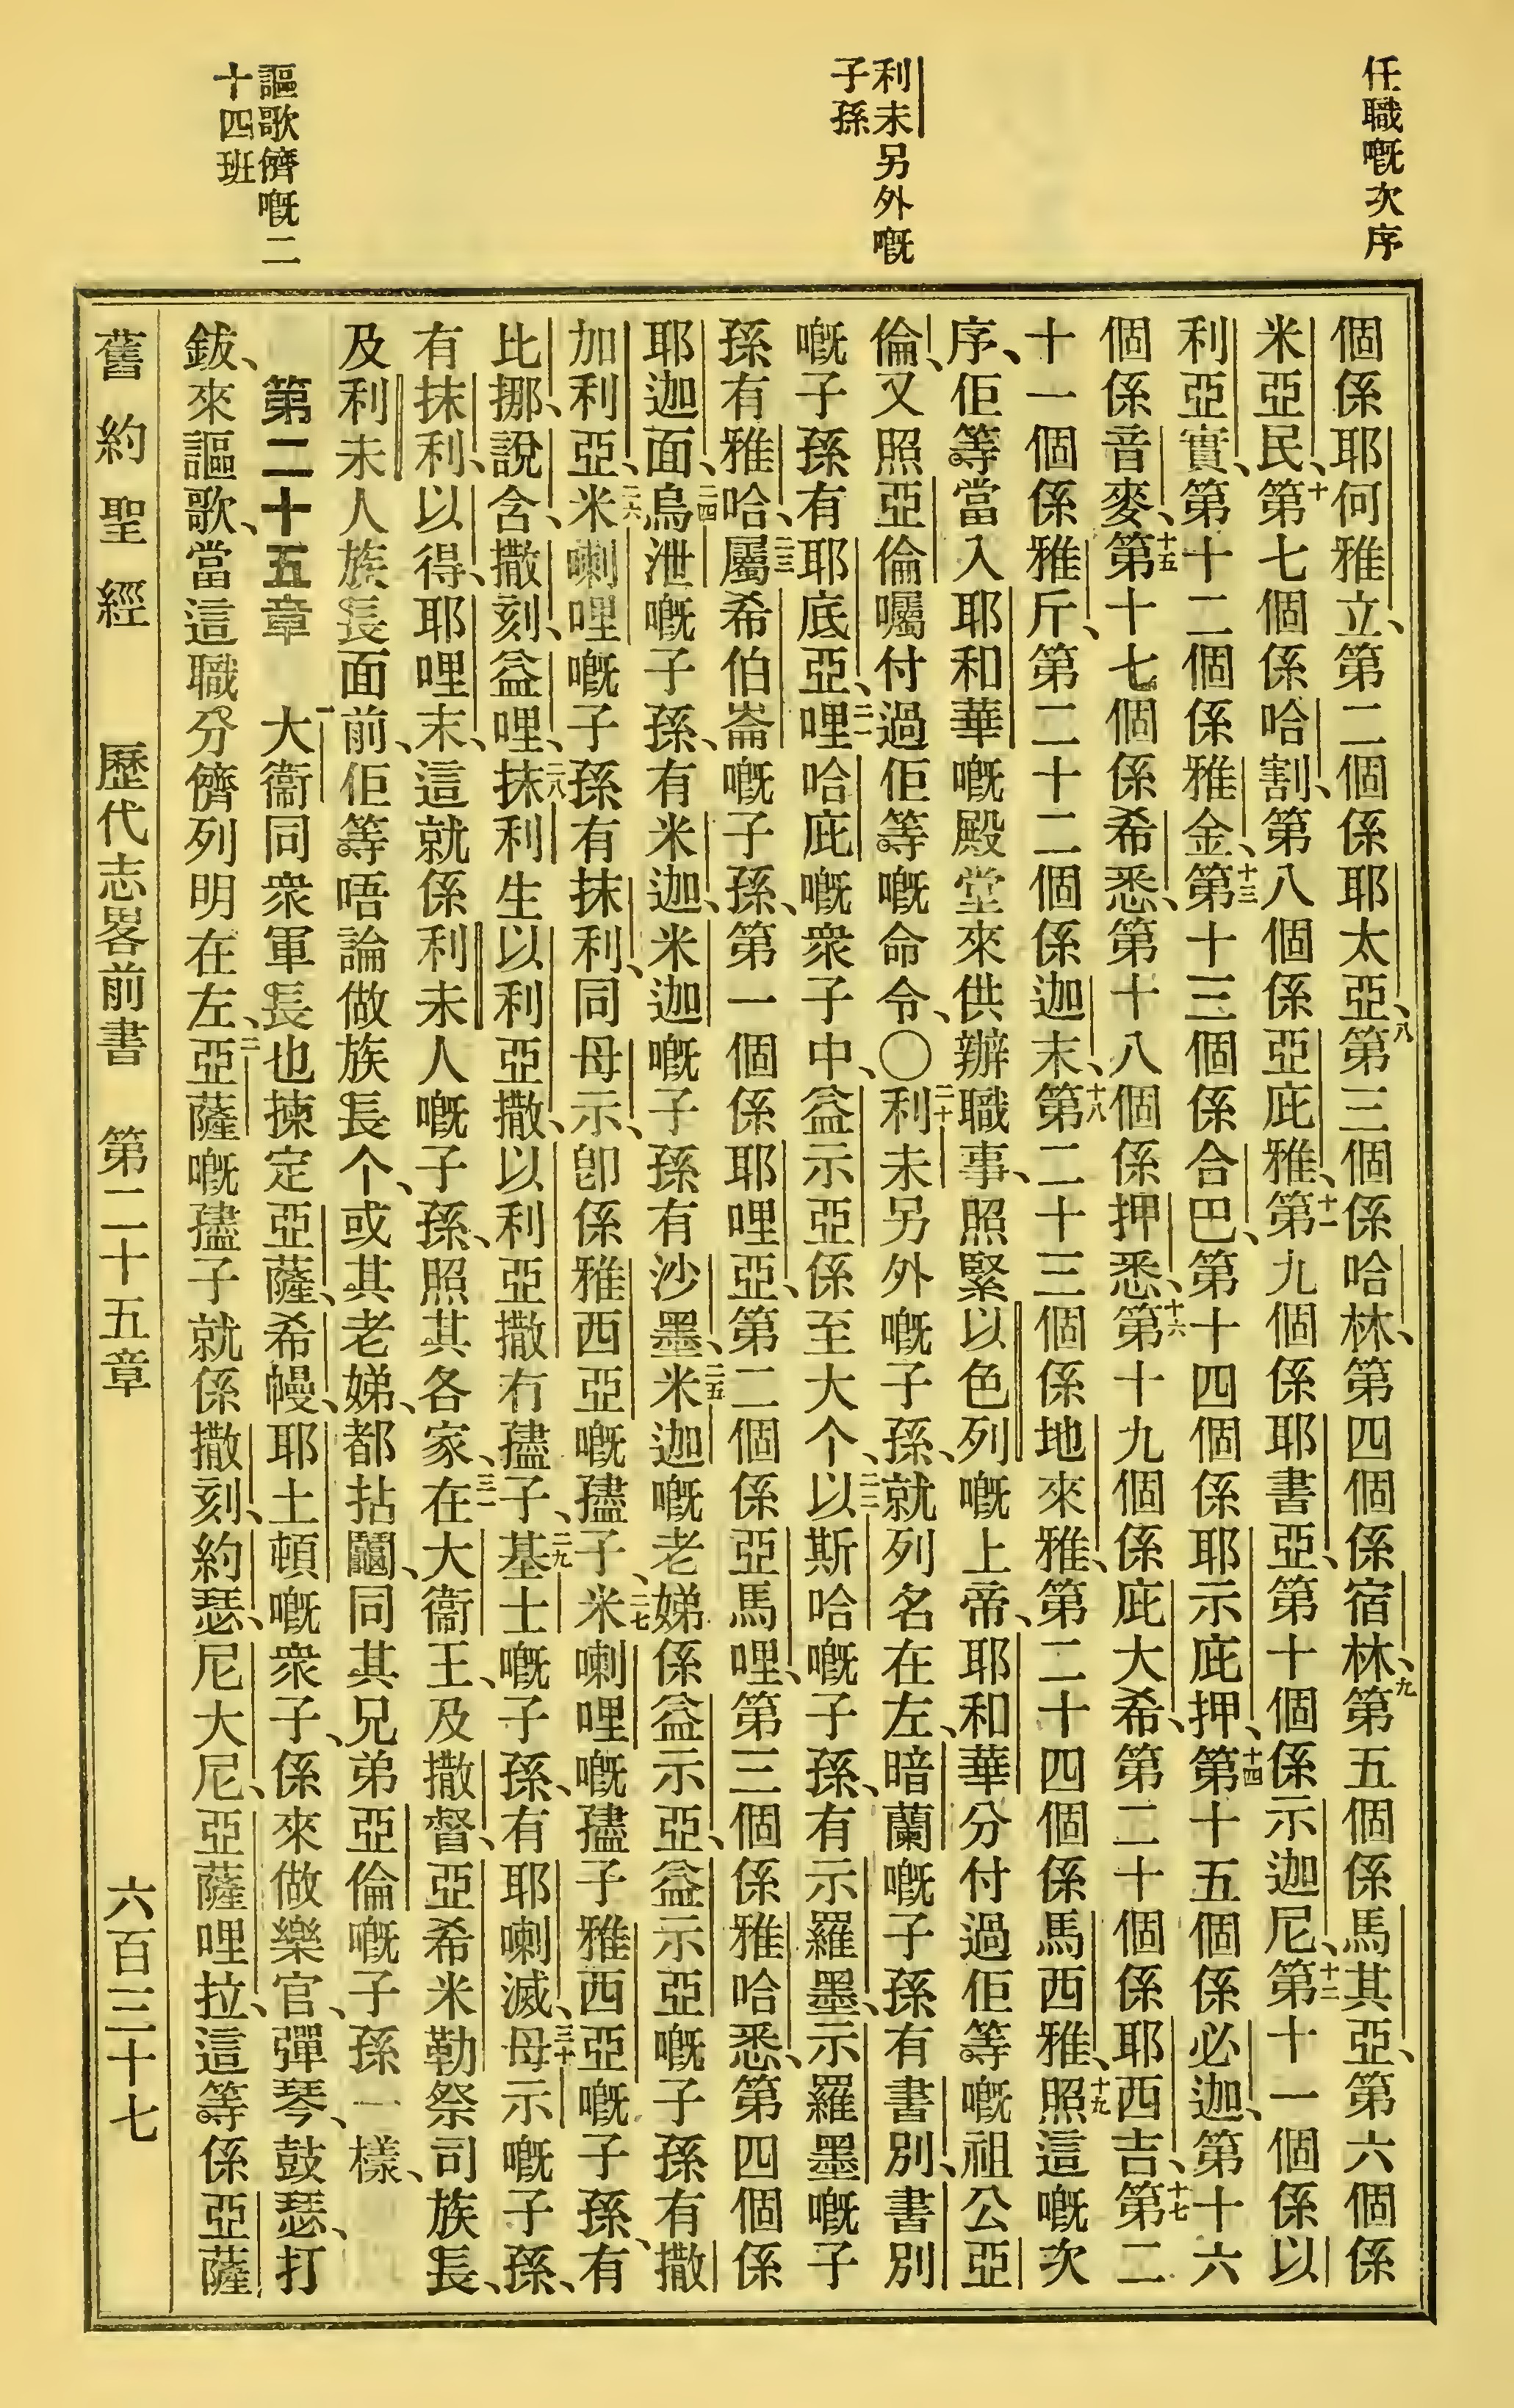 任職嘅次序
利未另外嘅
子孫
謳歌儕嘅二
十四班
個係耶何雅立、第二個係耶太亞、八第三個係哈林、第四個係宿林、九第五個係馬其亞、第六個係
米亞民、十第七個係哈割、第八個係亞庇雅、十一第九個係耶書亞、第十個係示迦尼、十二第十一個係以
利亞實、第十二個係雅金、十三第十三個係合巴、第十四個係耶示庇押、十四第十五個係必迦、第十六
個係音麥、十五第十七個係希悉、第十八個係押悉、十六第十九個係庇大希、第二十個係耶西吉、十七第二
十一個係雅斤、第二十二個係迦末、十八第二十三個係地來雅、第二十四個係馬西雅、十九照這嘅次
序、佢等當入耶和華嘅殿堂來供辦職事、照緊以色列嘅上帝、耶和華分付過佢等嘅祖公亞
倫、又照亞倫囑付過佢等嘅命令、〇二十利未另外嘅子孫、就列名在左、暗蘭嘅子孫有書別、書別
嘅子孫有耶底亞、二一哩哈庇嘅衆子中、益示亞係至大个、二二以斯哈嘅子孫、有示羅墨、示羅墨嘅子
孫有雅哈、二三屬希伯崙嘅子孫、第一個係耶哩亞、第二個係亞馬哩、第三個係雅哈悉、第四個係
耶迦面、二四烏泄嘅子孫、有米迦、米迦嘅子孫有沙墨、二五米迦嘅老娣係益示亞、益示亞嘅子孫有撒
加利亞、二六米喇哩嘅子孫有抹利、同母示、卽係雅西亞嘅𡥧子、二七米喇哩嘅𡥧子雅西亞嘅子孫、有
比挪、說含、撒刻、益哩、二八抹利生以利亞撒、以利亞撒冇𡥧子、二九基士嘅子孫、有耶喇滅、三十母示嘅子孫、
有抹利、以得、耶哩末、這就係利未人嘅子孫、照其各家、三一在大衞王、及撒督、亞希米勒祭司族長、
及利未人族長面前、佢等唔論做族長个、或其老娣、都拈鬮、同其兄弟亞倫嘅子孫一樣、
第二十五章 一大衞同衆軍長也揀定亞薩、希幔、耶土頓嘅衆子、係來做樂官、彈琴、鼓瑟、打
鈸、來謳歌、當這職分儕列明在左、二亞薩嘅𡥧子就係撒刻、約瑟、尼大尼、亞薩哩拉、這等係亞薩
舊約聖經 歷代志畧前書 第二十五章 六百三十七